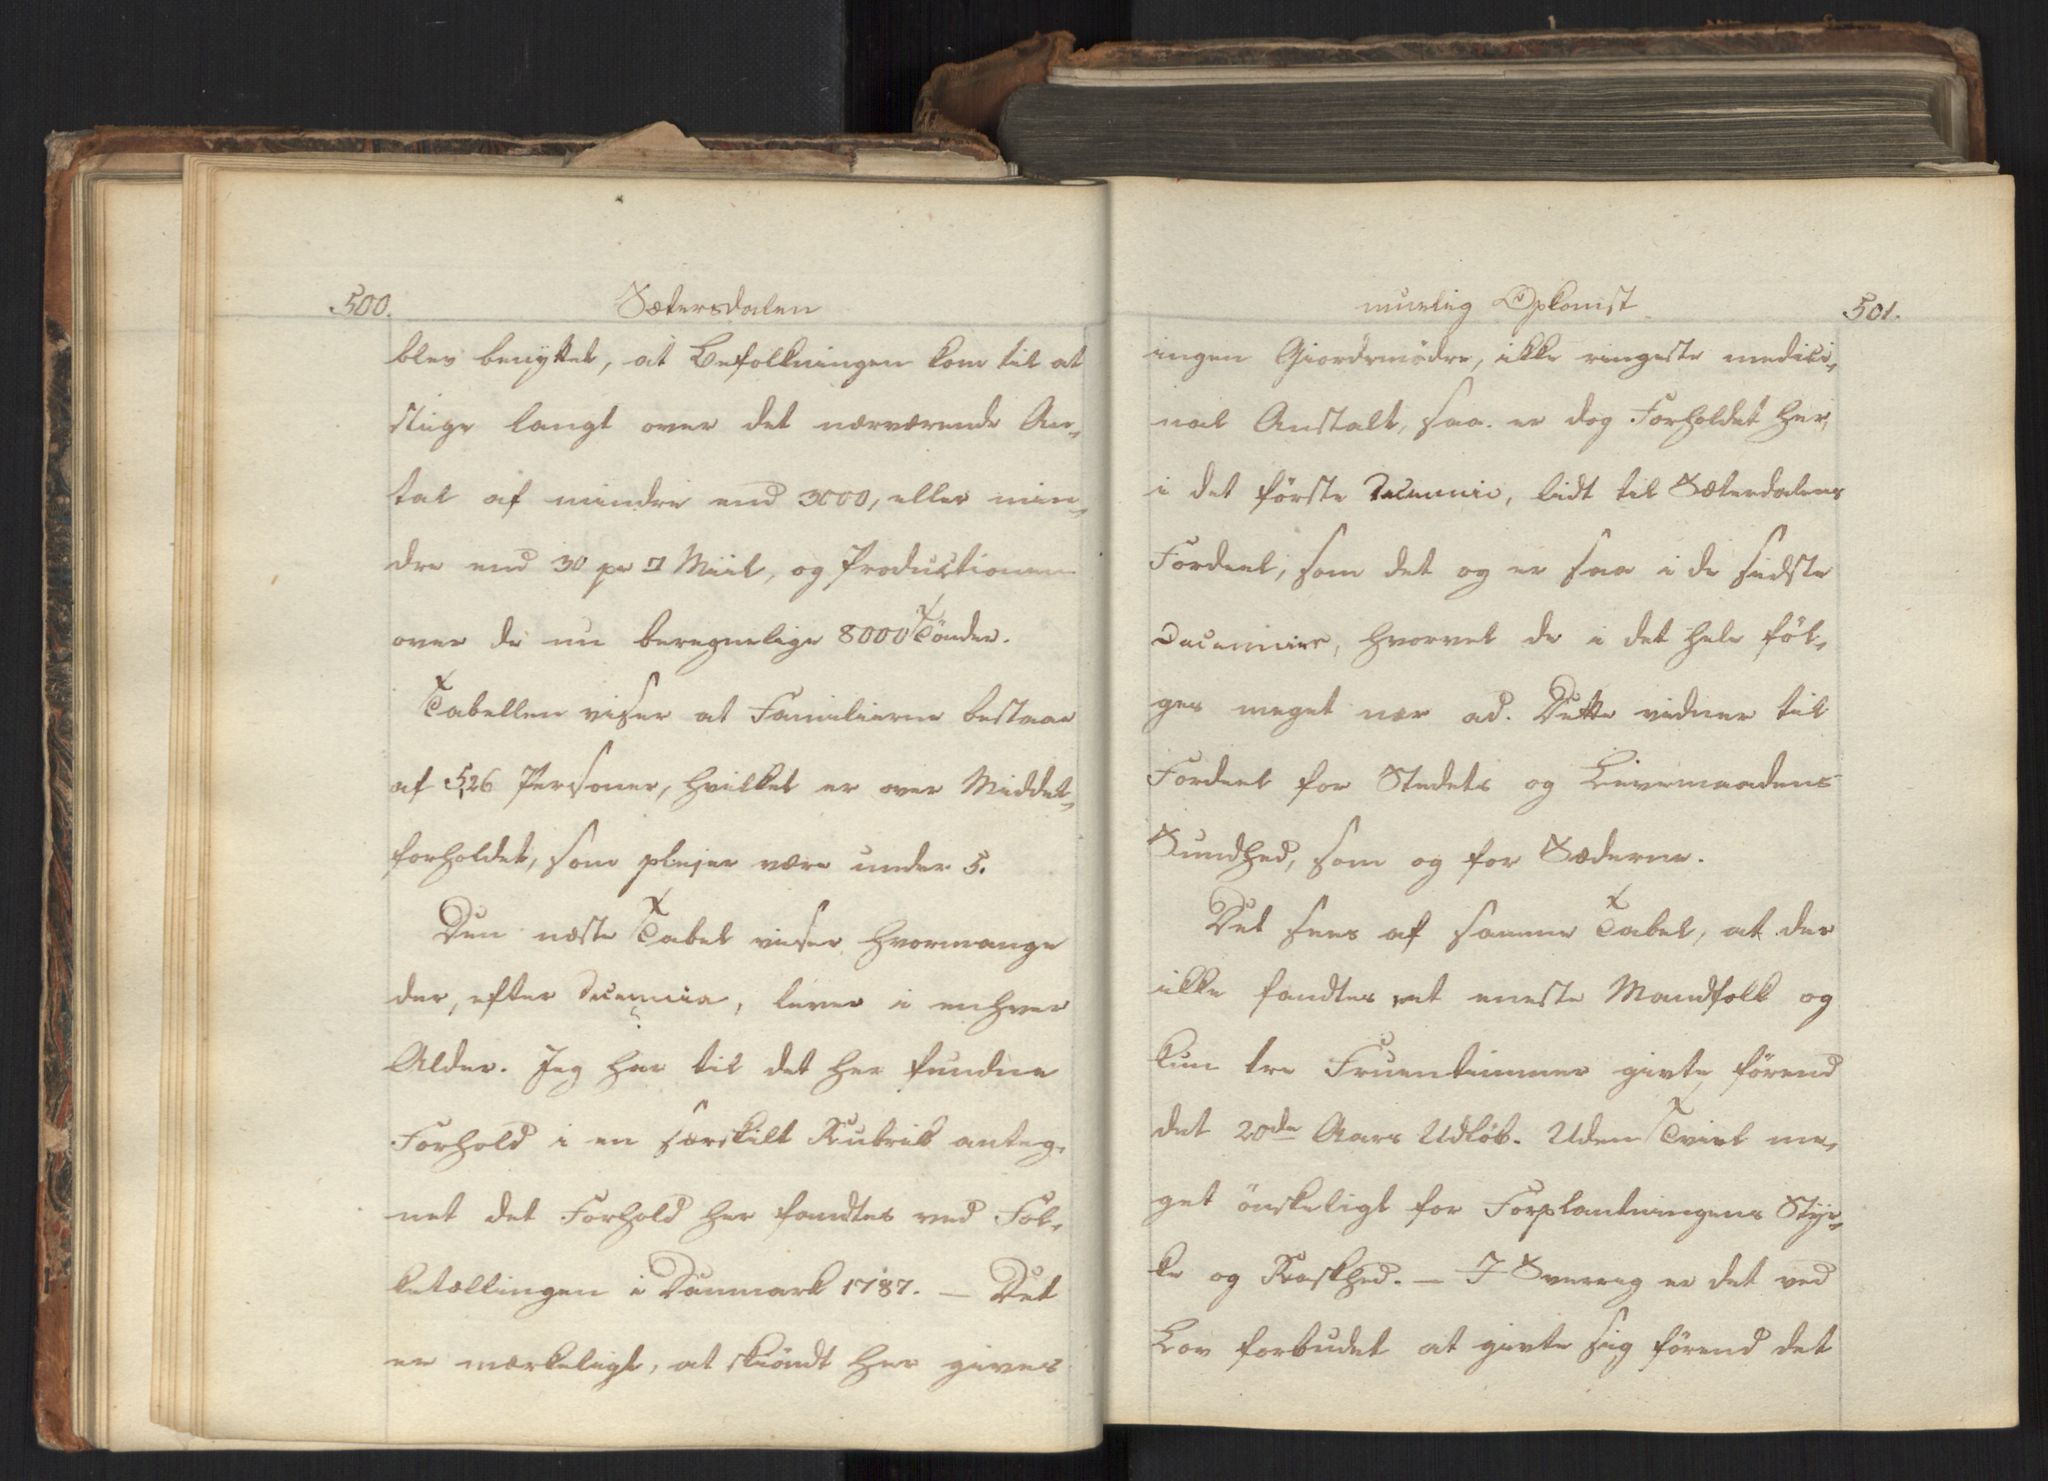 500.
Sætersdalen
blev benyttet, at Befolkningen kom til at
stige langt over det nærværende An-
tal af mindre end 3000, eller min-
dre end 30 pr □ Miil, og Productionen
over de nu beregnelige 8000 Tönder.
Tabellen viser at Familierne bestaae
af 5,26 Personer, hvilket er over Middel-
forholdet, som plejer være under 5.
Den næste Tabel viser, hvormange
der, efter Decennia, lever i enhver
Alder. Jeg har til det her fundne
Forhold i en særskilt Rubrik anteg-
net det Forhold her fandtes ved Fol-
ketællingen i Danmark 1787. — Det
er mærkeligt, at skiöndt her gives
muelig Opkomst
501.
ingen Giordemødre, ikke ringeste medici-
nal Anstalt, saa er dog Forholdet her,
i det förste Decennie, lidt til Sæterdalens
Fordeel, som det og er saa i de sidste
Decennier, hvorvel de i det hele föl-
ges meget nær ad. Dette vidner til
Fordeel for Stedets og Levemaadens
Sundhed, som og for Sæderne.
Det sees af samme Tabel, at der
ikke fandtes et eneste Mandfolk og
kun tre Fruentimmer givte förend
det 20de Aars Udlöb. Uden Tvivl me-
get önskeligt for Forplantningens Styr-
ke og Raskhed. — I Sverrig er det ved
Lov forbudet at givte sig förend det